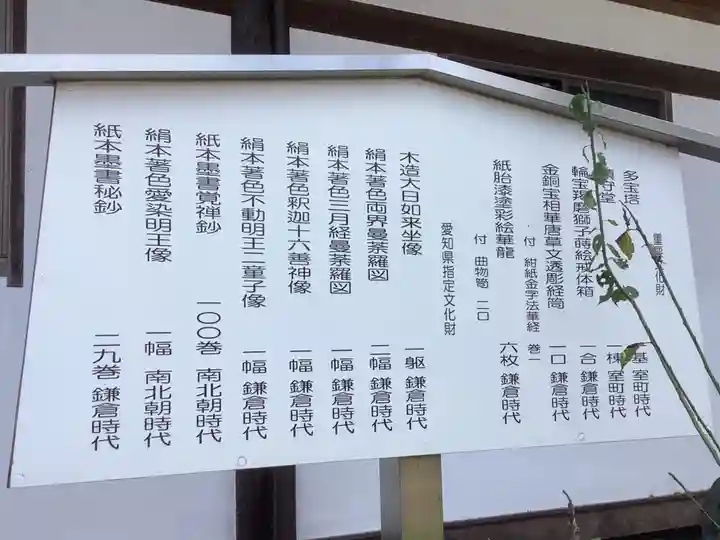 重要文化財
多宝塔 一基 室町時代
守堂 一棟 室町時代
輪宝羯磨獅子蒔絵戒体箱 一合 鎌倉時代
金銅宝相華唐草文透彫経筒 一口 鎌倉時代
付 紺紙金字法華経 巻一
紙胎漆塗彩絵華籠 六枚 鎌倉時代
付 曲物笥 二口
愛知県指定文化財
木造大日如来坐像 一躯 鎌倉時代
絹本著色両界曼荼羅図 二幅 鎌倉時代
絹本著色三月経曼荼羅図 一幅 鎌倉時代
絹本著色釈迦十六善神像 一幅 鎌倉時代
絹本著色不動明王二童子像 一幅 鎌倉時代
紙本墨書覚禅鈔 一〇〇巻 南北朝時代
絹本著色愛染明王像 一幅 南北朝時代
紙本墨書秘鈔 二九巻 鎌倉時代